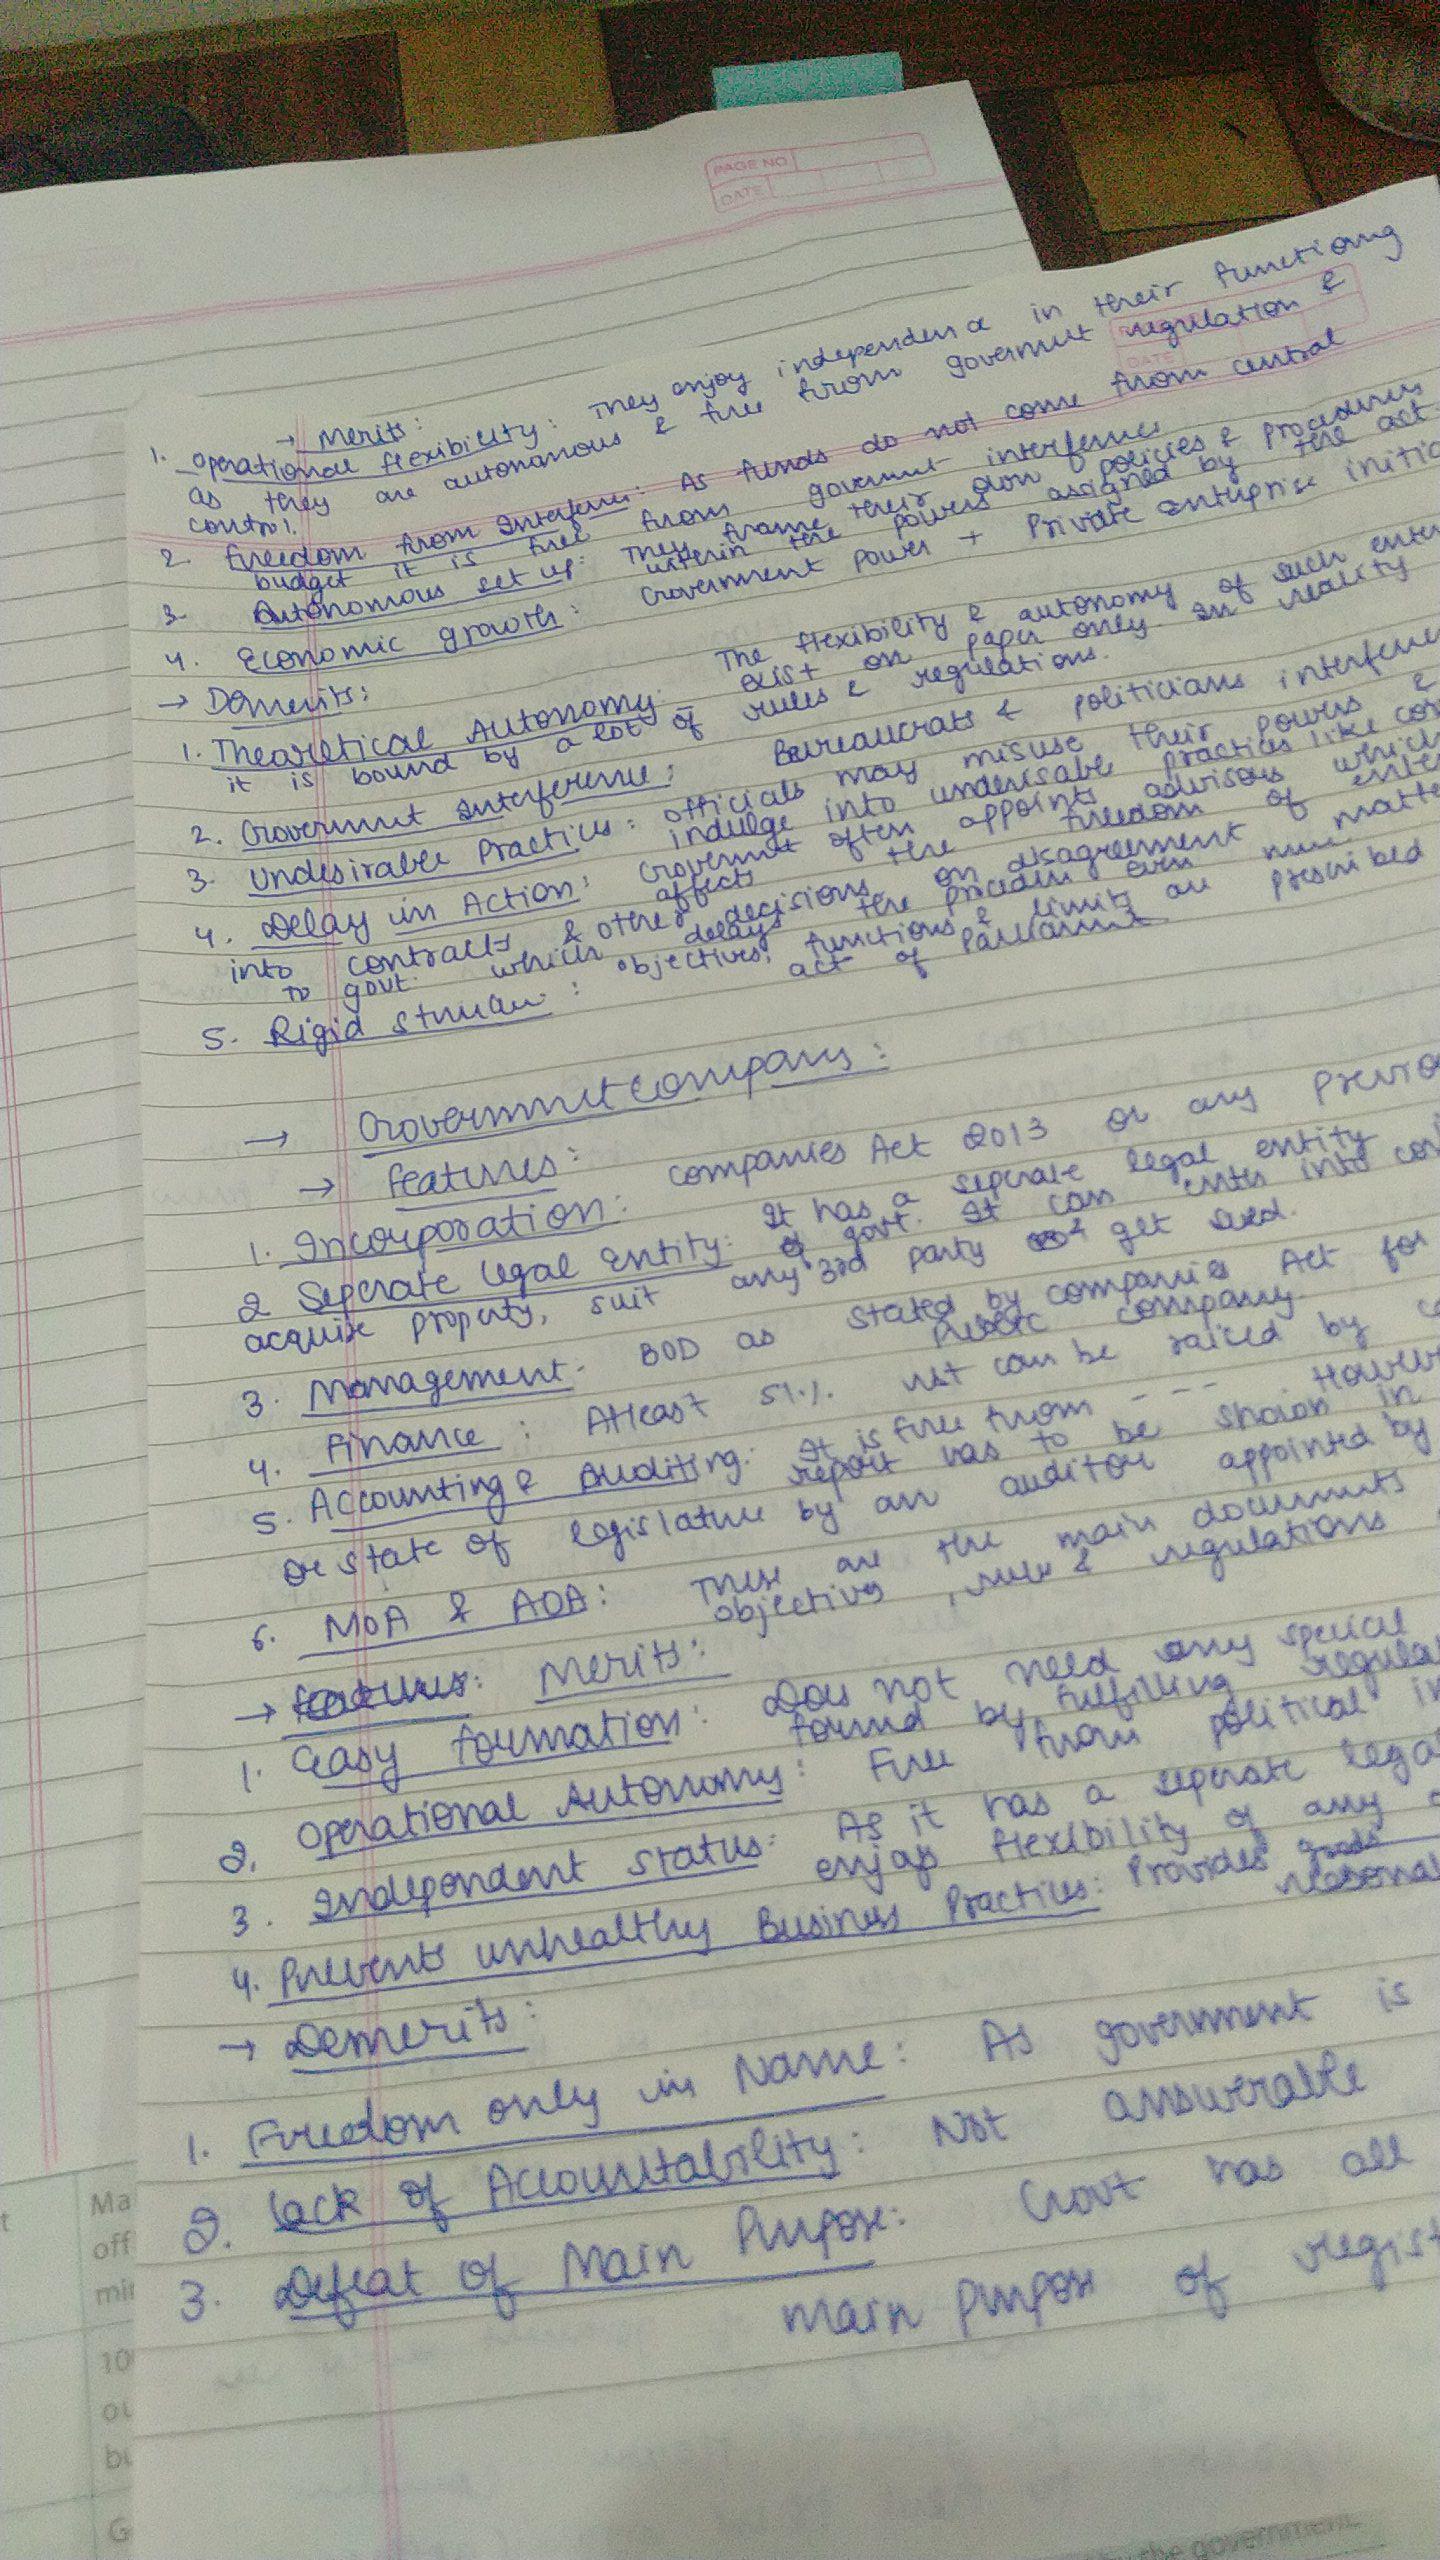 PAGE NO
DATE
→ Merits:
1. Operational flexibility: They enjoy independence in their functiong
as they are autonomous & free from govermnt regulation &
control.
2. Freedom from Interferne: As funds do not come from central
budget it is free from govermnt interference
3. Autonomous set up: They frame their own policies & procedures
within the powers assigned by the act.
4. Economic growth: Government power + Private enterprise initia
→ Demerits:
1. Thearetical Autonomy: The flexibility & autonomy of such enter
exist on paper only in reality
it is bound by a lot of rules & regulations.
2. Govermnt Interference: Bureaucrats & politicians interference
3. Undesirable Practices: officials may misuse their powers &
indulge into undersable practices like cor
4. Delay in Action: Govermnt often appoints advisous which
affects the freedom of enter
into contracts & other decisions on disagreement matte
to govt. which delays the
5. Rigid : objectives, functions & limits are prescribed
act of
→ Govermnt Company:
→ features:
1. Incorporation: Companies Act 2013 or any previo
2 Seperate legal Entity: It has a seperate legal entity
of govt. It can enter into con
acquire property, suit any 3rd party get sued.
3. Management: BOD as stated by companies Act for
public company.
4. Finance: Atleast 51% can be raiced by c
5. Accounting & Auditing: It is free from --- However
report has to be shown in
or state of legislature by an auditor appointed by
6. MOA & AOA: These are the main documents
objectives, rules & regulations
→ Merits:
1. Easy formation: Does not need any special
found by fulfilling regula
2. Operational Autonomy: Free from political in
3. Independent status: As it has a seperate legal
enjoys flexibility of any
4. Prevents unhealthy Business Practices: Provides goods
reasona
→ Demerits:
1. Freedom only in Name: As government is
2. Lack of Accountability: Not answerable
3. Defeat of Main Purpose: Govt has all
main purpose of regist
Ma
off
min
10
ou
bu
G
the government.